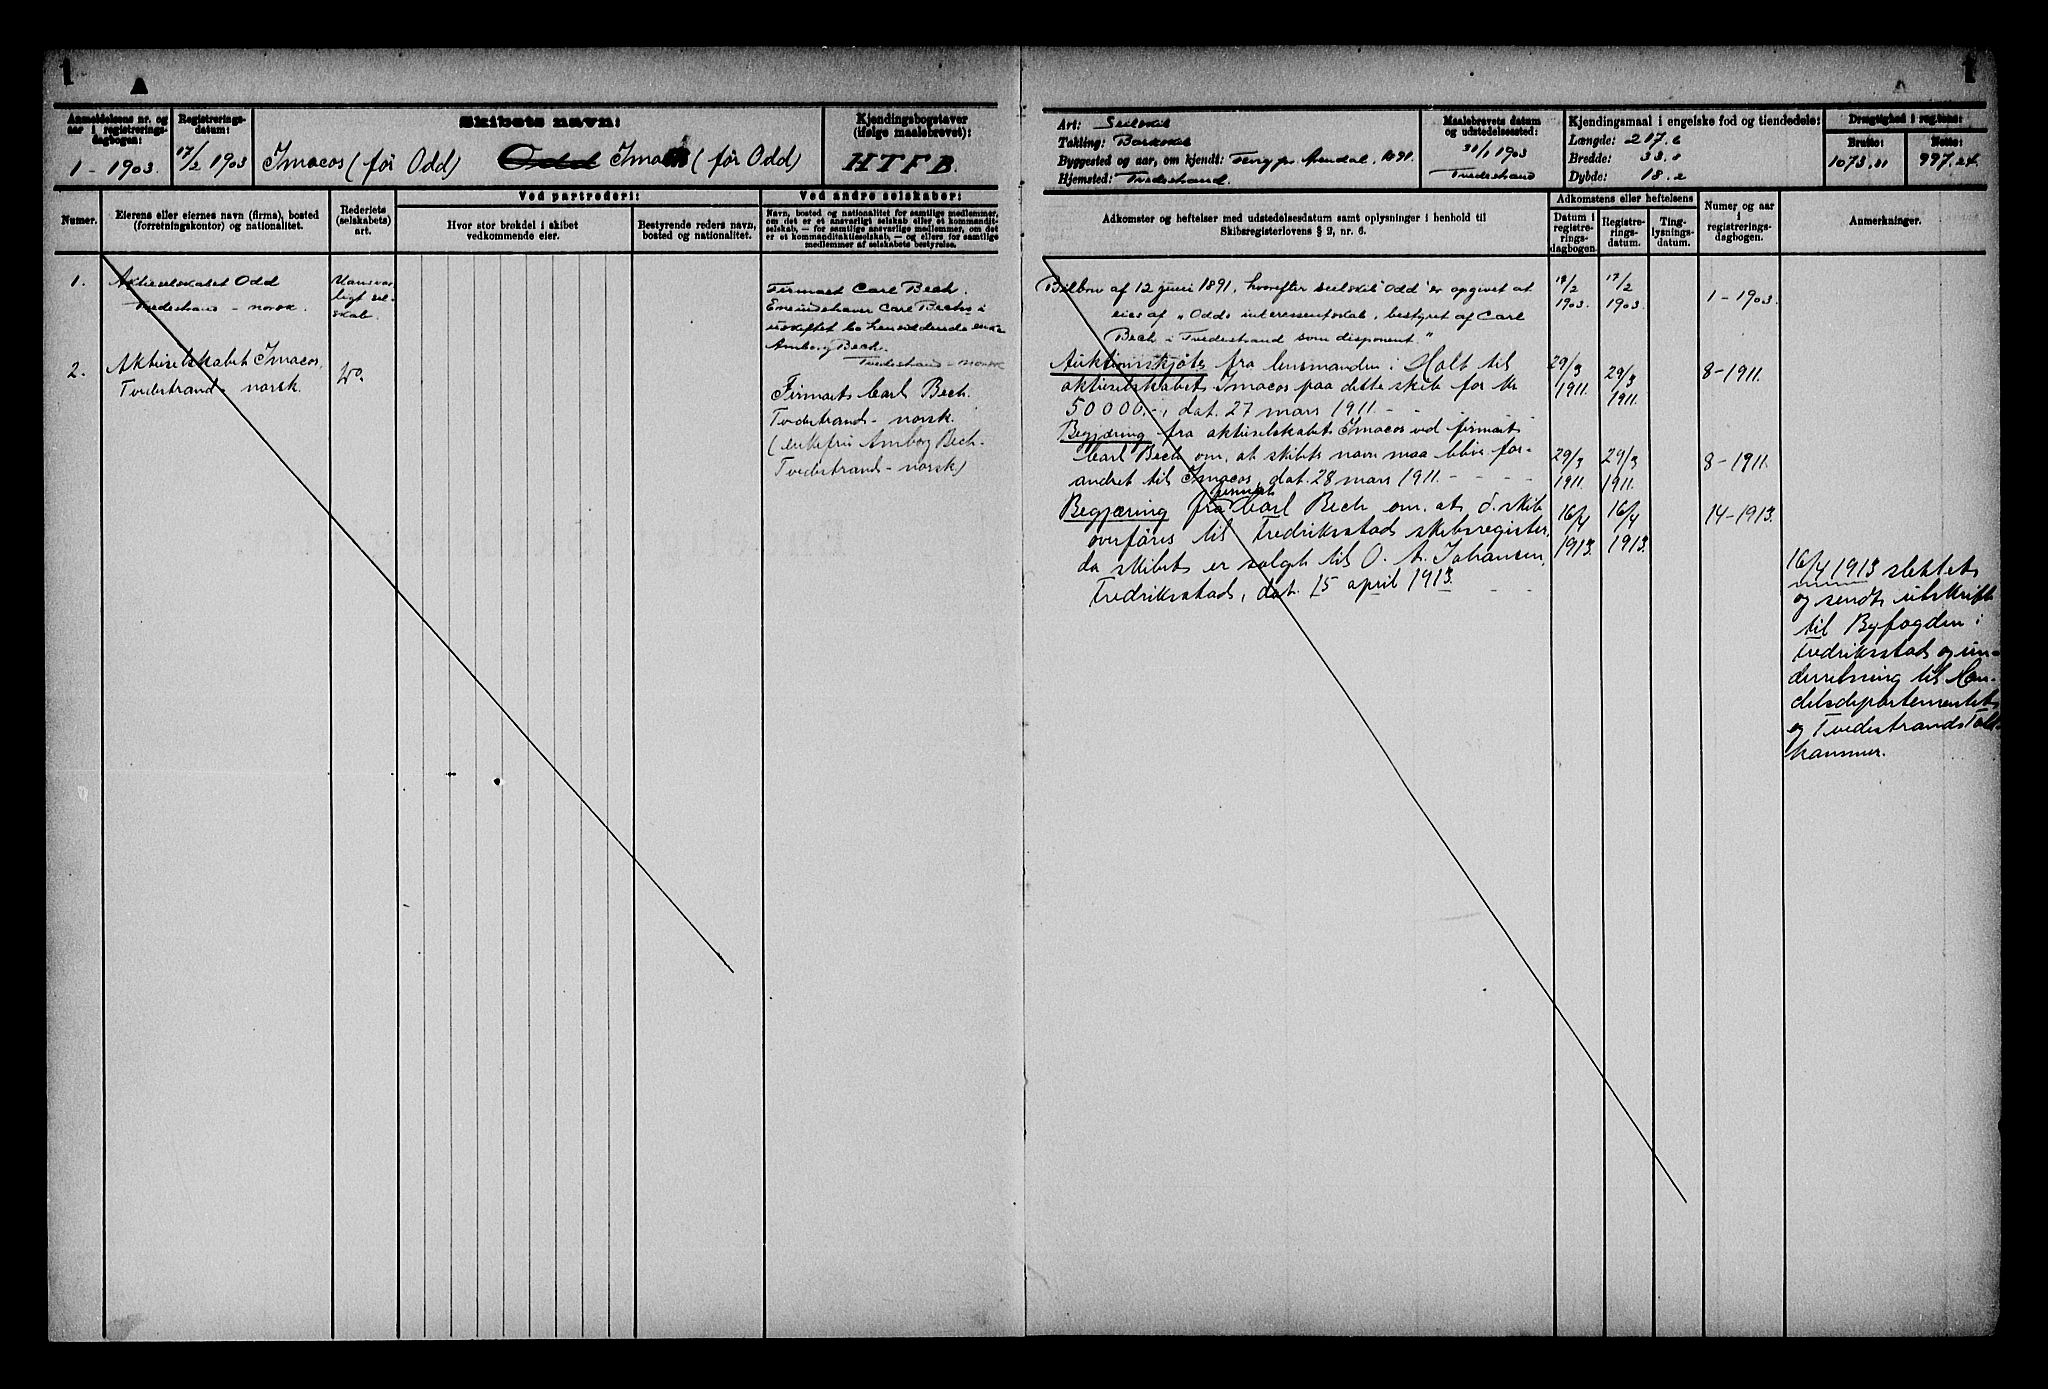 1
Anmeldelsens nr. og
aar i registrerings-
dagbogen:
1 - 1903.
Registrerings-
datum:
17/2 1903
Skibets navn:
Imacos (før Odd) Odd (før Odd)
Kjendingsbogstaver
(ifølge maalebrevet):
HTFB.
Numer.
Eierens eller eiernes navn (firma), bosted
(forretningskontor) og nationalitet.
Rederiets
(selskabets)
art.
Ved partrederi:
Hvor stor brøkdel i skibet
vedkommende eier.
Bestyrende reders navn,
bosted og nationalitet.
Ved andre selskaber:
Navn, bosted og nationalitet for samtlige medlemmer,
om det er et ansvarligt selskab eller et kommandit-
selskab, — for samtlige ansvarlige medlemmer, om det
er et kommanditaktieselskab, — og ellers for samtlige
medlemmer af selskabets bestyrelse.
1.
Aktieselskabet Odd
Tvedestrand - norsk.
Uansvar
ligt sel-
skab.
Firmaet Carl Bech.
Eneindehaver Carl Bechs i
uskiftet bo hensiddende enke
Amborg Bech.
Tvedestrand - norsk
2.
Aktieselskabet Imacos,
Tvedestrand - norsk.
Do.
Firmaet Carl Bech.
Tvedestrand - norsk.
(enkefru Amborg Bech -
Tvedestrand - norsk)
1
Art: Seilskib
Takling: Barkskib
Byggested og aar, om kjendt: pr Arendal, 1891.
Hjemsted: Tvedestrand.
Maalebrevets datum
og udstedelsessted:
31/1 1903
Tvedestrand
Kjendingsmaal i engelske fod og tiendedele:
Længde: 217.6
Bredde: 33.
Dybde: 18.2
Drægtighed i regtons:
Brutto:
1073.11
Netto:
997.24
Adkomster og heftelser med udstedelsesdatum samt oplysninger i henhold til
Skibsregisterlovens § 2, nr. 6.
Adkomstens eller heftelsens
Datum i
registre-
rings-
dagbogen.
Registre-
rings-
datum.
Ting-
lysnings-
datum.
Numer og aar
i
registrerings-
dagbogen.
Anmerkninger.
Bilbrev af 12 juni 1891, hvorefter seilskib "Odd" er opgivet at
eies af "Odds interessentskab, bestyret af Carl
Bech i Tvedestrand som disponent."
/2 1903. 17/2 1903. 1 - 1903.
Auktionsskjøte fra lensmanden i Holt til
aktieselskabet Imacos paa dette skib for kr
50000.-, dat. 27 mars 1911. -
29/3 1911. 29/3 1911. 8 - 1911.
Begjæring fra aktieselskabet Imacos ved firmaet
Carl Bech om, at skibets navn maa blive for-
andret til Imacos, dat. 28 mars 1911. - - -
29/3 1911. 29/3 1911. 8 - 1911.
Begjæring fra firmaet Carl Bech om, at d. skib
overføres til Fredriksstads skibsregister,
da skibet er solgt til O. A. Johansen,
Fredriksstad, dat. 15 april 1913. - -
16/4 1913. 16/4 1913. 14 - 1913.
16/4 1913 slettet
og sendt utskrift
til Byfogden i
Fredriksstad og un-
derretning til Han-
delsdepartementet
og Tvedestrands Told-
kammer.